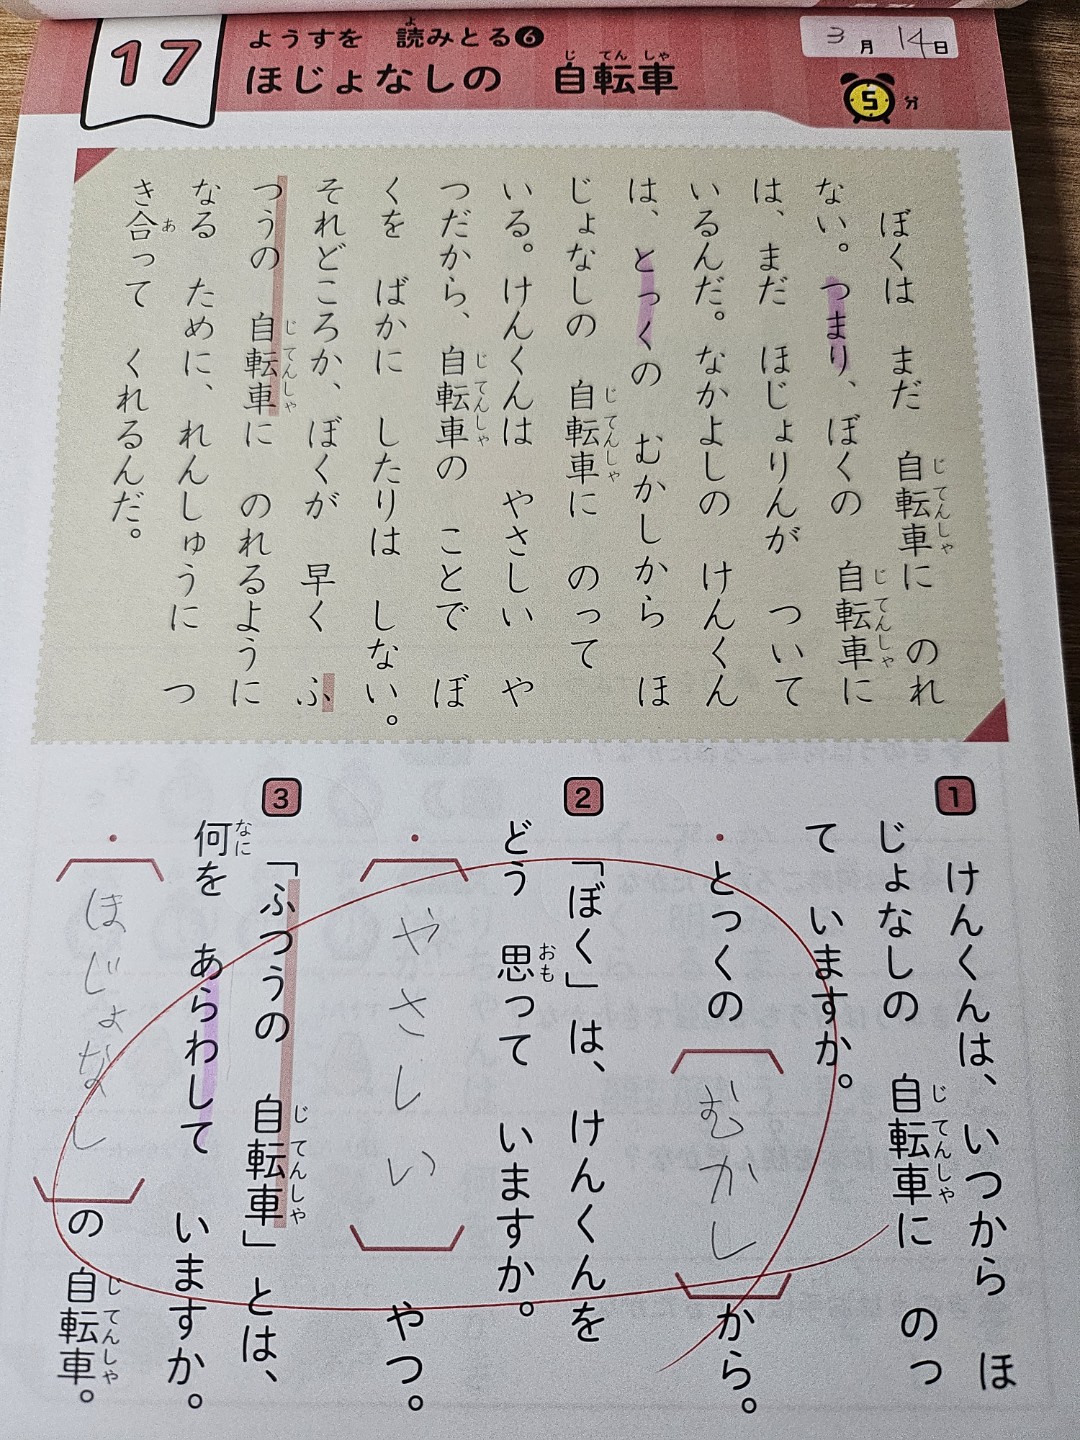 17
ようすを 読みとる6
ほじょなしの 自転車
3月14日
5分
ぼくは まだ 自転車に のれ
ない。つまり、ぼくの 自転車に
は、まだ ほじょりんが ついて
いるんだ。なかよしの けんくん
は、とっくの むかしから ほ
じょなしの 自転車に のって
いる。けんくんは やさしい や
つだから、自転車の ことで ぼ
くを ばかに したりは しない。
それどころか、ぼくが 早く ふ
つうの 自転車に のれるように
なる ために、れんしゅうに つ
き合って くれるんだ。
1
けんくんは、いつから ほ
じょなしの 自転車に のっ
て いますか。
・とっくの むかし から。
2
「ぼく」は、けんくんを
どう 思って いますか。
・やさしい やつ。
3
「ふつうの 自転車」とは、
何を あらわして いますか。
・ほじょなし の 自転車。